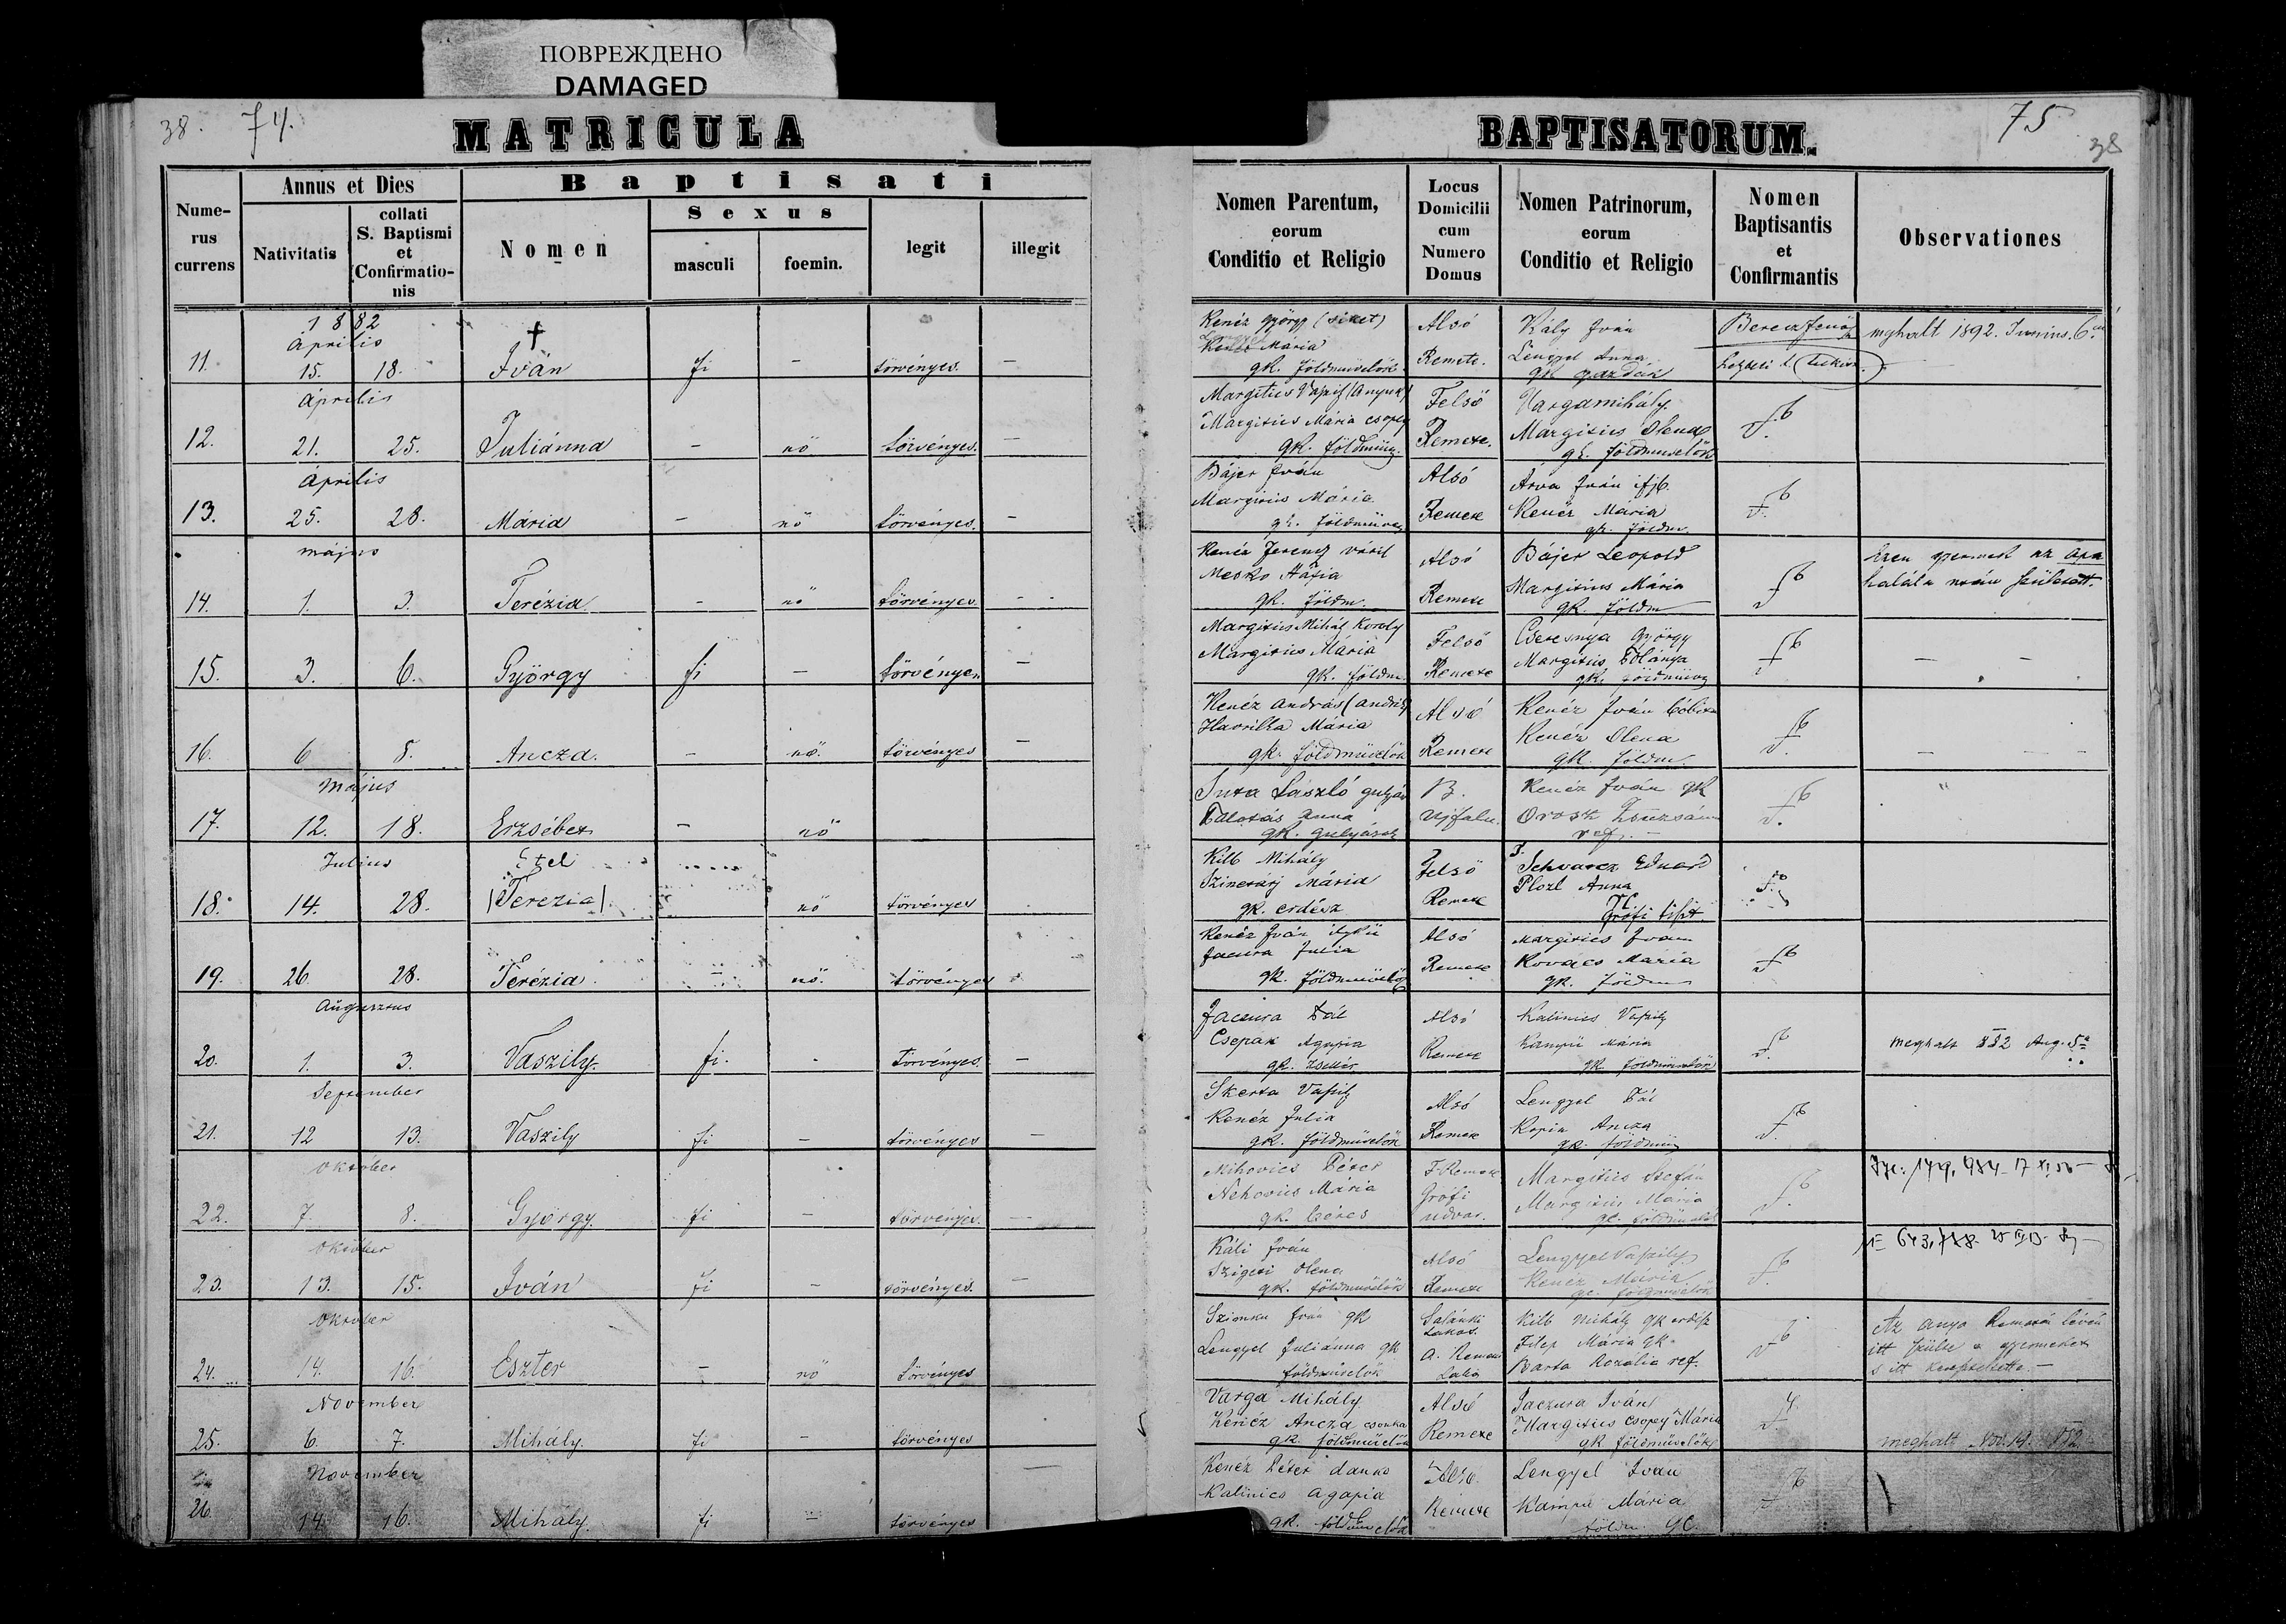 ПОВРЕЖДЕНО
DAMAGED
38. 74.
MATRICULA
BAPTISATORUM.
75
38
Numerus currens
Annus et Dies
Nativitatis
collati S. Baptismi et Confirmationis
Baptisati
Nomen
Sexus
masculi
foemin.
legit
illegit
Nomen Parentum, eorum Conditio et Religio
Locus Domicilii cum Numero Domus
Nomen Patrinorum, eorum Conditio et Religio
Nomen Baptisantis et Confirmantis
Observationes
1882
Április
11. 15. 18. Iván fi – törvényes. –
Kenéz György (siket)
Mária
gk. földmüvelök
Alsó
Remete.
Kály Iván
Lengyel Anna
gk gazdák
Berecz Jenö
meghalt 1892. Junius 6.
Április
12. 21. 25. Juliánna – nö törvényes. –
Margitics
Margitics Mária csopey
gk. földmüv.
Felsö
Remete.
Varga Mihály
Margitics Olena
gk. földmüvelök
Április
13. 25. 28. Mária – nö törvényes. –
Bájer Iván
Margitics Mária
gk. földmüves
Alsó
Remete
Árva Iván ifjb.
Kenéz Mária
gk. földm.
május
14. 1. 3. Terézia – nö törvényes. –
Kenéz Ferencz
Mesko
gk. földm.
Alsó
Remete
Bájer Leopold
Margitics Mária
gk. földm
Ezen gyermek az apa
halála után született.
15. 3. 6. György fi – törvényes –
Margitics Mihály
Margitics Mária
gk. földm.
Felsö
Remete
Cseresnya György
Margitics
gk. földmüves
– –
16. 6 8. Ancza. – nö. törvényes –
Kenéz András (andris)
Havrilla Mária
gk. földmüvelök
Alsó
Remete
Kenéz Iván
Kenéz Olena
gk. földm.
Május
17. 12. 18. Erzsébet – nö
Suta László gulyás
Anna
gk. gulyások
B.
Ujfalu.
Kenéz Iván gk
Orosz Zsuzsánna
ref. –
Julius
Etel
18. 14. 28. (Terezia) nö törvényes
Kilb Mihály
Mária
gk. erdész
Felsö
Remete
Schvarcz Eduard
Plozl Anna
Grófi tiszt.
19. 26. 28. Terézia. – nö. törvényes
Kenéz Iván
Jaczura Julia
gk. földmüvelö
Alsó
Remete
Margitics Ivan
Kovács Mária
gk. földm
Augusztus
20. 1. 3. Vaszily. fi. – Törvényes. –
Jaczura Pál
Csepak Agapia
gk. zsellér
Alsó
Remete
Kalinics Vaszily
Kampü Mária
gk földmüvelök
meghalt 882 Aug. 5
September
21. 12 13. Vaszily fi – törvényes –
Skerta Vaszily
Kenéz Julia
gk. földmüvelök
Alsó
Remete
Lengyel Pál
Kopin Ancza
gk. földmüv
Október
22. 7. 8. György. fi – törvényes. –
Mihovics Péter
Nehovics Mária
gk. béres
F. Remete
Grófi
udvar.
Margitics Stefán
Margitics Mária
Október
23. 13. 15. Iván fi – törvényes. –
Káli Iván
Szigeti Olena
gk. földmüvelök
Alsó
Remete
Lengyel Vaszily
Kenéz Mária
Október
24. 14. 16. Eszter – nö törvényes
Szimku Iván gk
Lengyel Juliánna gk
földmüvelök
Salánki
lakos.
A. Remete
Kilb Mihály gk erdész
Filep Mária gk.
Barta Rozália ref.
Az anya Remetei lévén
itt szülte a gyermeket
s itt kereszteltette. –
November
25. 6. 7. Mihály. fi – törvényes
Varga Mihály
Kenéz Ancza csonka
gk. földmüvelök
Alsó
Remete
Jaczura Iván
Margitics csopey Mária
gk földmüvelök
meghalt Nov. 14. 882.
November
26. 14. 16. Mihály. fi – törvényes
Kenéz Péter danko
Kalinics Agapia
gk. földmüvelök
Alsó
Remete
Lengyel Ivan
Kampü Mária
földm. gk.